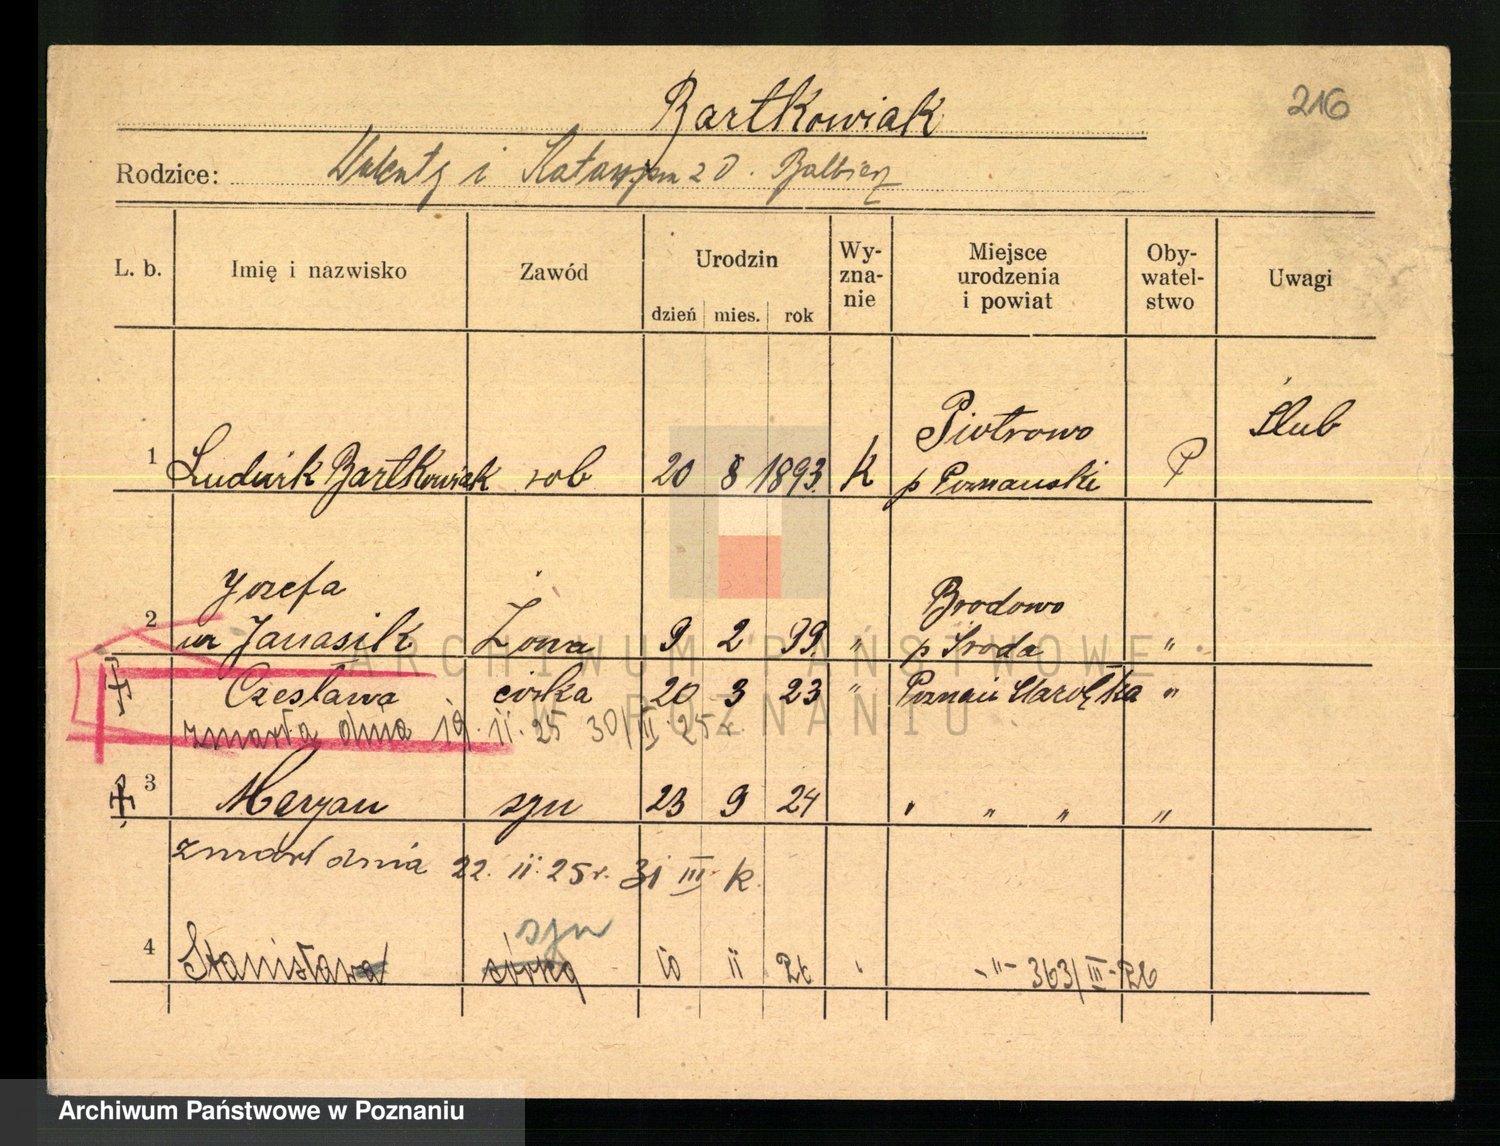 216
Bartkowiak
Rodzice: Walenty i Katarzyna z d. Balbierz
L. b. Imię i nazwisko Zawód Urodzin dzień mies. rok Wy-zna-nie Miejsce urodzenia i powiat Oby-watel-stwo Uwagi
Piotrowo Ślub
1 Ludwik Bartkowiak rob 20 8 1893. K p Poznański P
Jozefa Brodowo
2 ur Janasik Żona 9 2 99. " p Sroda "
Czesława córka 20 3 23 " Poznań Starołęka "
zmarła dnia 19. II. 25 30/III. 25 r.
3 Maryan syn 23 9 24 " " " "
zmarł dnia 22. II. 25 r. 31 III. k.
syn
4 Stanisława córka 10 II 26 " - " - 363/III-26
ARCHIWUM PAŃSTWOWE
W POZNANIU
Archiwum Państwowe w Poznaniu